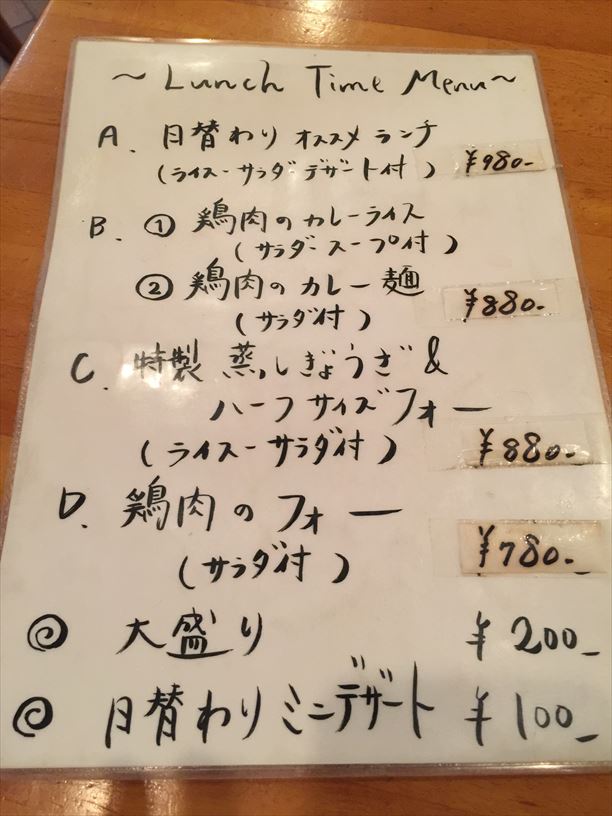 ~Lunch Time Menu~
A. 日替わり オススメランチ
(ライス・サラダ・デザート付) ¥980-
B. ① 鶏肉のカレーライス
(サラダ・スープ付)
② 鶏肉のカレー麺
(サラダ付) ¥880-
C. 特製 蒸しぎょうざ &
ハーフサイズフォー
(ライス・サラダ付) ¥880-
D. 鶏肉のフォー
(サラダ付) ¥780-
◎ 大盛り ¥200-
◎ 日替わりミニデザート ¥100-